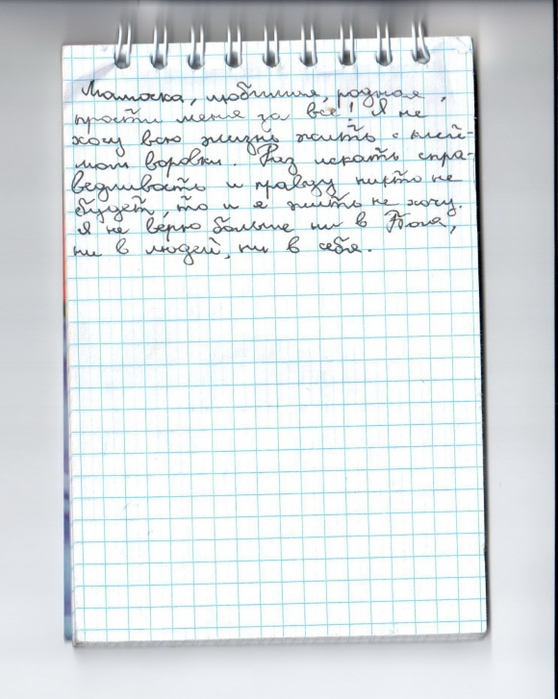 Мамочка, любимая, родная,
прости меня за всё! Я не
хочу всю жизнь жить с клей-
мом воровки. Раз искать спра-
ведливость и правду никто не
будет, то и я жить не хочу.
Я не верю больше ни в Бога,
ни в людей, ни в себя.